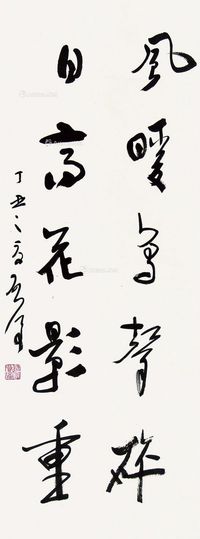 風暖鳥聲碎
日高花影重
丁丑之